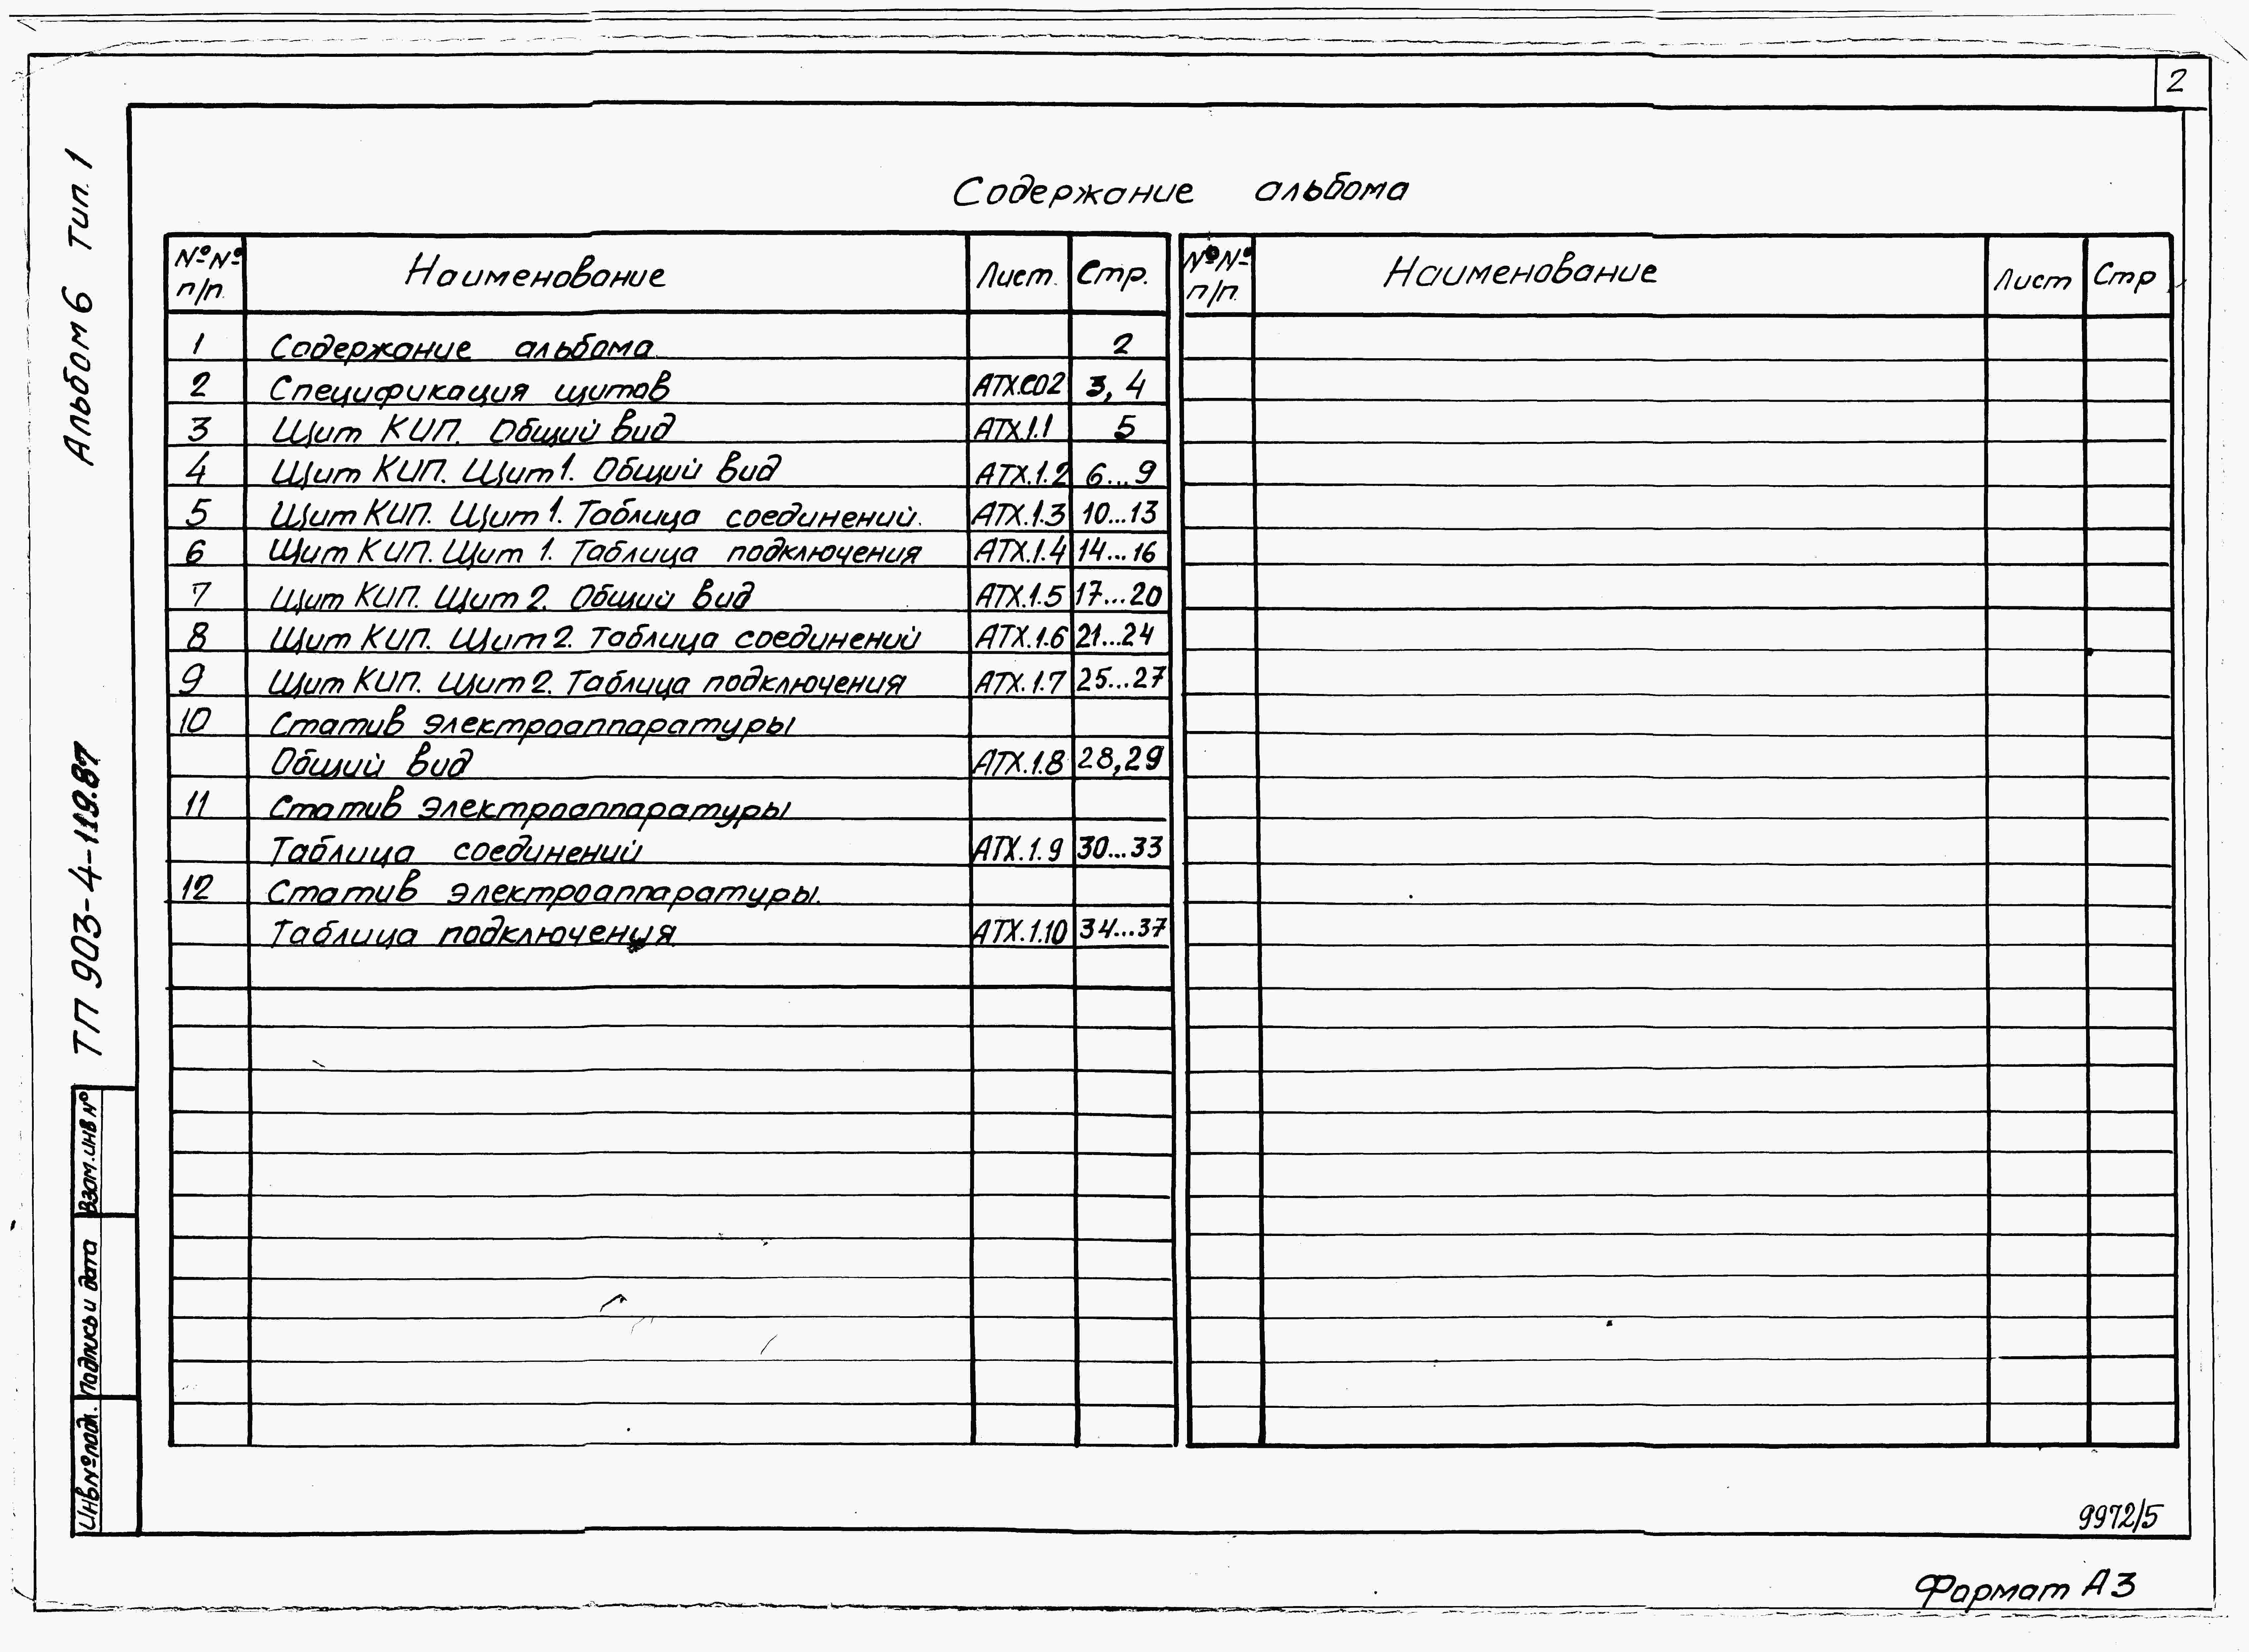 2
Альбом 6 Тип. 1
ТП 903-4-119.87
Содержание альбома
№№ п/п. Наименование Лист. Стр. №№ п/п. Наименование Лист Стр
1 Содержание альбома 2
2 Спецификация щитов АТХ.СО2 3, 4
3 Щит КИП. Общий вид АТХ.1.1 5
4 Щит КИП. Щит 1. Общий вид АТХ.1.2 6...9
5 Щит КИП. Щит 1. Таблица соединений. АТХ.1.3 10...13
6 Щит КИП. Щит 1. Таблица подключения АТХ.1.4 14...16
7 Щит КИП. Щит 2. Общий вид АТХ.1.5 17...20
8 Щит КИП. Щит 2. Таблица соединений АТХ.1.6 21...24
9 Щит КИП. Щит 2. Таблица подключения АТХ.1.7 25...27
10 Статив электроаппаратуры
Общий вид АТХ.1.8 28,29
11 Статив электроаппаратуры
Таблица соединений АТХ.1.9 30...33
12 Статив электроаппаратуры.
Таблица подключения АТХ.1.10 34...37
Взам.инв №
Подпись и дата
Инв№подл.
9972/5
Формат А3